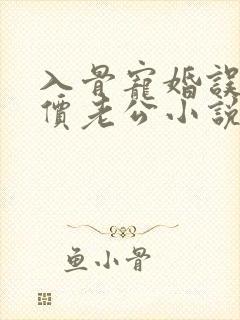 入骨寵婚誤
價老公小說
鱼小骨